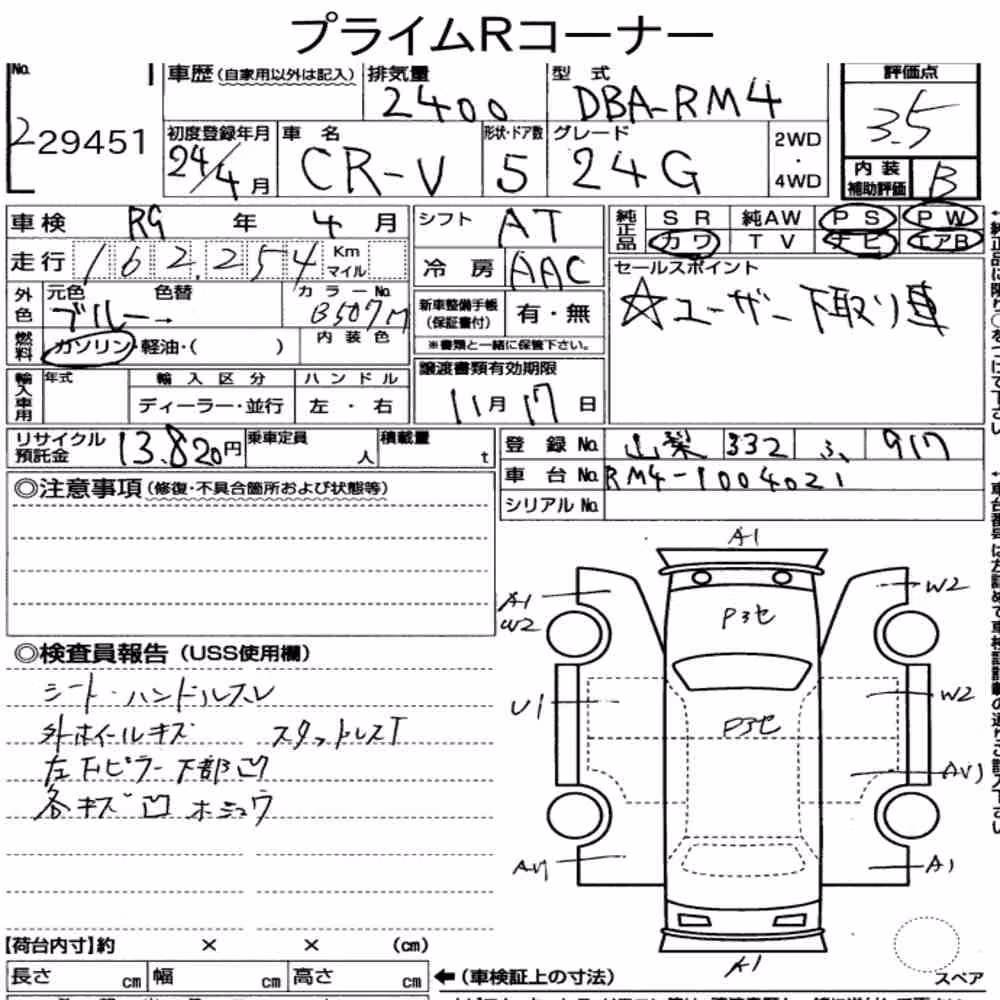 プライムRコーナー
No.
229451
車歴(自家用以外は記入)
排気量
2400
型式
DBA-RM4
評価点
3.5
初度登録年月
24/4月
車名
CR-V
形状・ドア数
5
グレード
24G
2WD
・
4WD
内装
補助評価
B
車検 R9 年 4 月
走行 162,254 Km
マイル
シフト AT
冷房 AAC
純正品
SR 純AW PS PW
カワ TV ナビ エアB
外色
元色
ブルー→
色替
カラーNo.
B507M
燃料
ガソリン・軽油・( )
内装色
新車整備手帳
(保証書付)
有・無
※書類と一緒に保管下さい。
セールスポイント
☆ユーザー下取り車
輸入車用
年式
輸入区分
ディーラー・並行
ハンドル
左・右
譲渡書類有効期限
11月17日
リサイクル
預託金
13.820円
乗車定員
人
積載量
t
登録No. 山梨 332 ふ 917
車台No. RM4-1004021
シリアルNo.
◎注意事項(修復・不具合箇所および状態等)
◎検査員報告(USS使用欄)
シート・ハンドルスレ
外ホイールキズ スタットレスT
左下ピラー下部凹
各キズ凹ホシュウ
A1
A1
W2
W2
P3セ
U1
W2
P3セ
AU1
A1
A1
スペア
【荷台内寸】約 × × (cm)
長さ cm 幅 cm 高さ cm
←(車検証上の寸法)